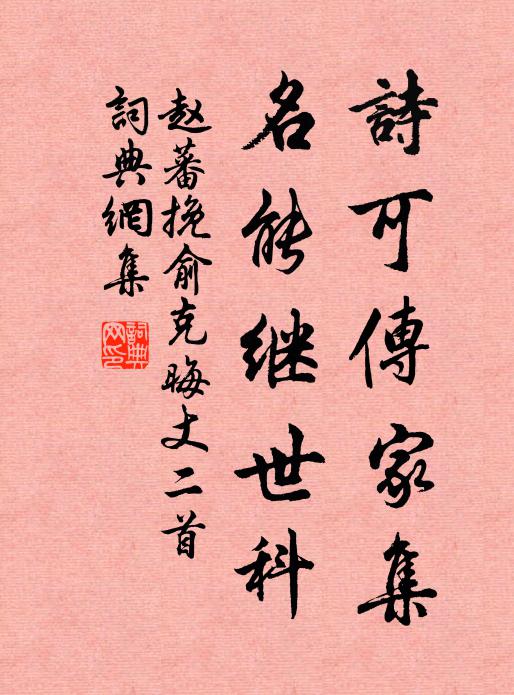 詩可傳家集
名能继世科
赵蕃挽俞克晦丈二首
詞典網集
詞典网印